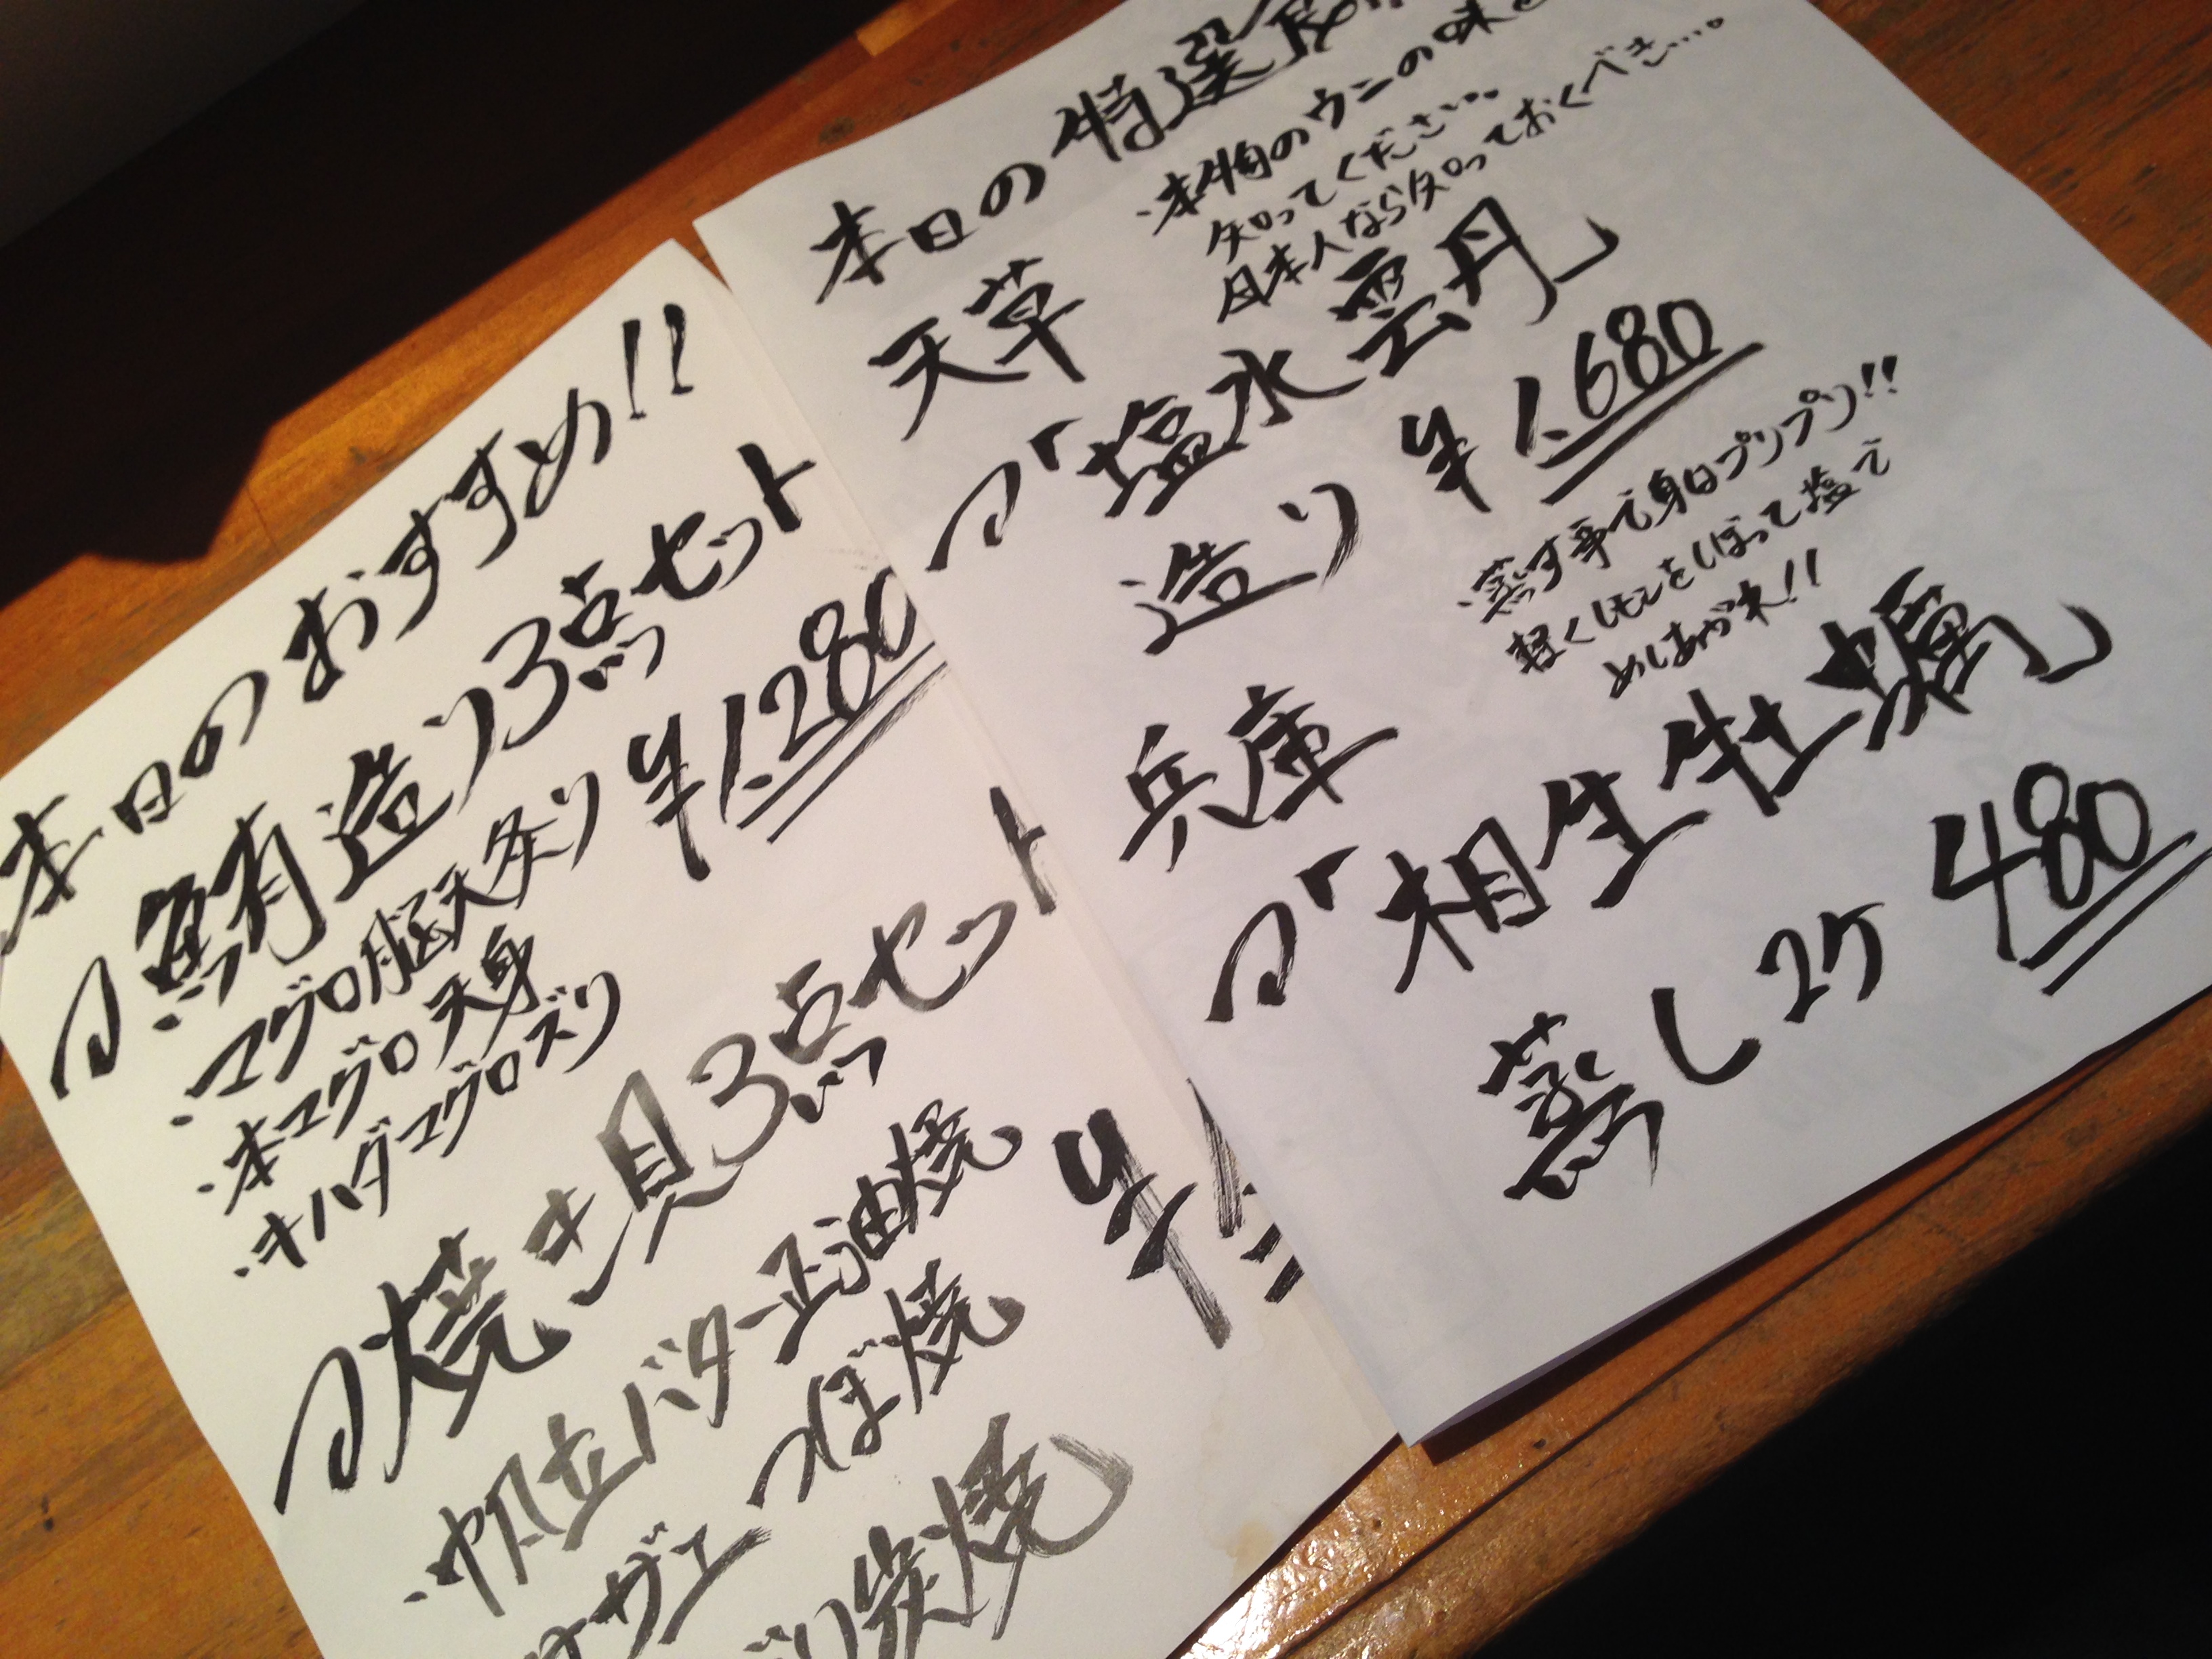 本日のおすすめ!!
鮪造り3点セット
¥1,280
・マグロ脳天炙り
・本マグロ天身
・キハダマグロズリ
焼き貝3点セット
・帆立バター正油焼
サザエつぼ焼
炭焼
本日の特選
・本物のウニの味を
知ってください。
日本人なら知っておくべき…。
天草
塩水雲丹
造り ¥1,680
・蒸す事で身はプリプリ!!
軽くレモンをしぼって塩で
めしあがれ!!
兵庫
相生牡蠣
蒸し2ケ 480